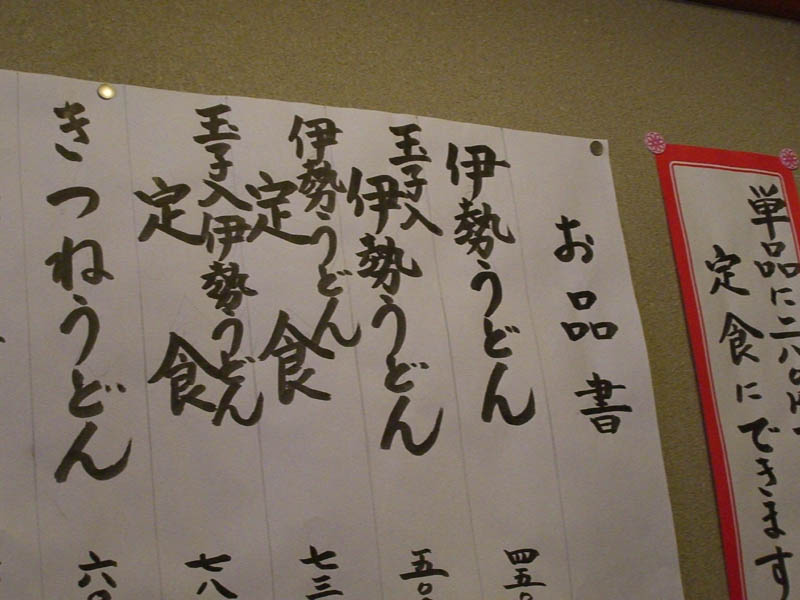 単品に二八〇円で
定食にできます
お品書
伊勢うどん
四五〇
玉子入伊勢うどん
五〇
伊勢うどん定食
七三
玉子入伊勢うどん定食
七八
きつねうどん
六〇